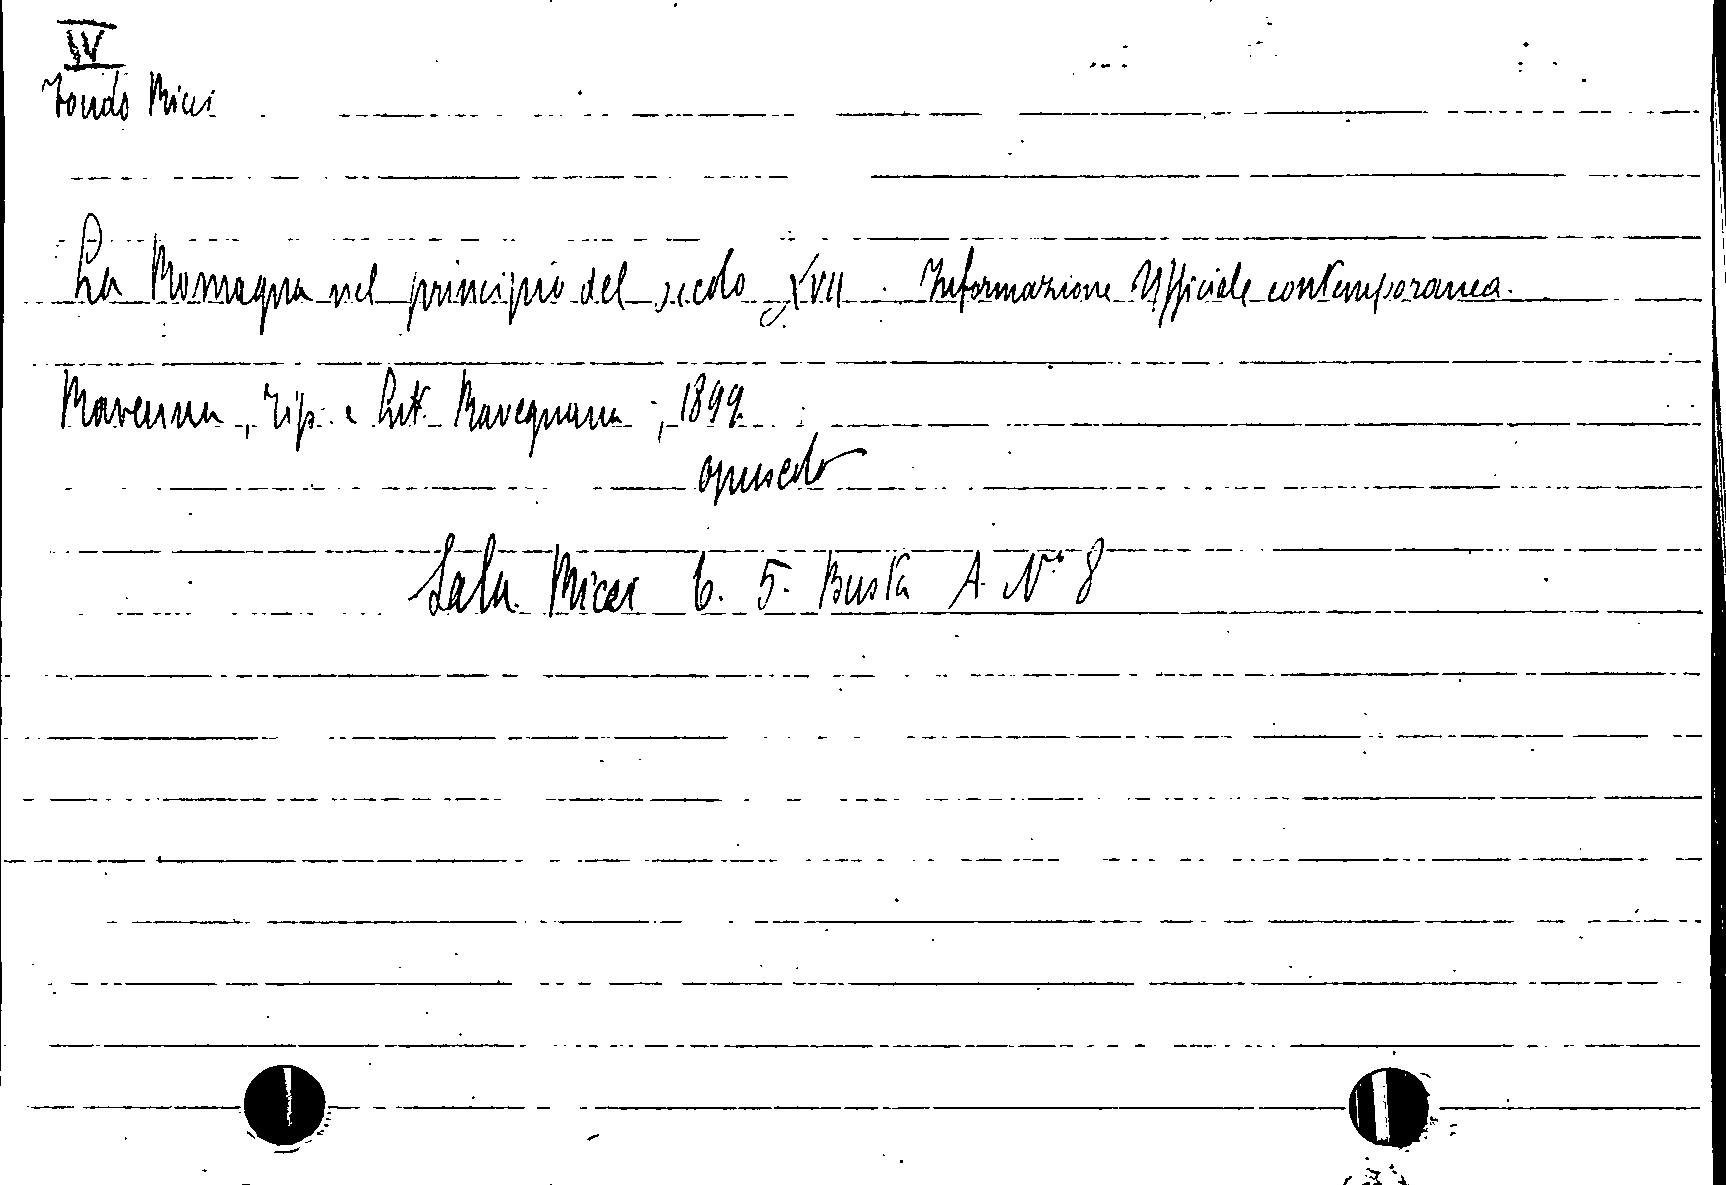 IV
Fondo Ricci
La Romagna nel principio del secolo XVII. Informazione Ufficiale contemporanea.
Ravenna, Tip. e Lit. Ravegnana, 1899.
opuscolo
Sala Ricci 6. 5. Busta A. N° 8